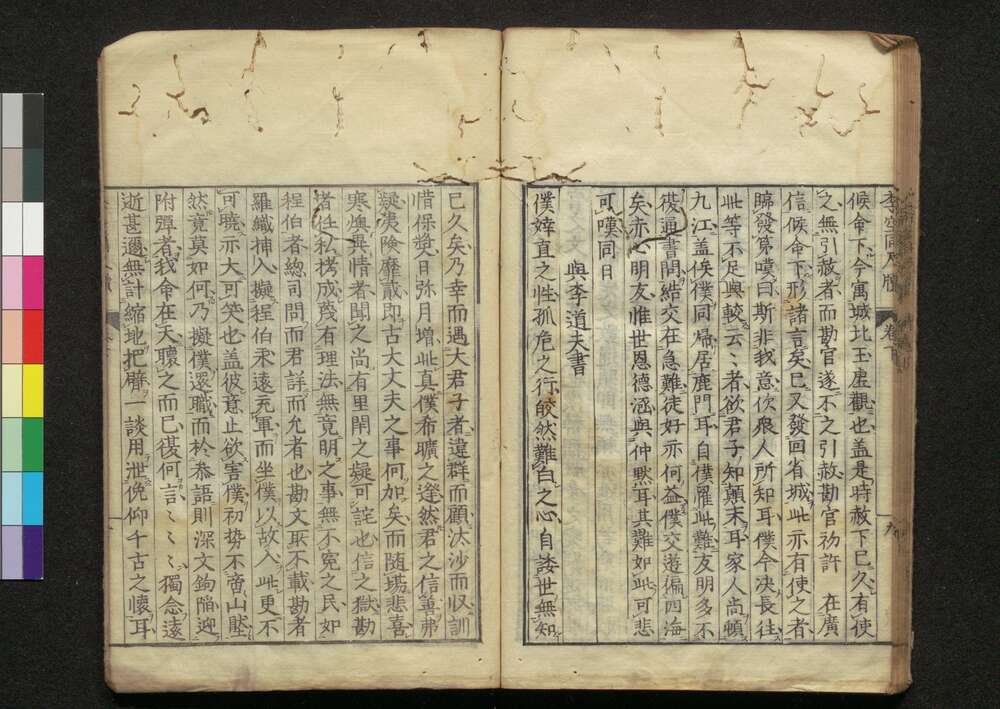 李空同尺牘　卷下　九
候命下今寓城北玉虛觀也蓋是時赦下已久有使
之無引赦者而勘官遂不之引赦勘官初許　在廣
信候命下形諸言矣已又發回省城此亦有使之者
歸發第嘆曰斯非我意伙眾人所知耳僕今決長往
此等不足與較云〻者欲君子知顛末耳家人尚頓
九江蓋俟僕同歸居鹿門耳自僕罹此難友明多不
復通書問結交在急難徒好亦何益僕交遊遍四海
矣亦心明友惟世恩德涵與仲默耳其難如此可悲
可嘆同日
與李道夫書
僕婞直之性孤危之行皎然難白之心自諉世無知
已久矣乃幸而遇大君子者違群而顧汰沙而収訓
惜保奬日弥月增此真僕布曠之逢然君之信篤弗
疑夷險靡貳即古大丈夫之事何加矣而随場悲喜
寒燠異情者聞之尚有里閈之疑可詫也信之獄勘
者任私拷成蔑有理法無竟明之事無不寃之民如
程伯者總司問而君詳而允者也勘文取不載勘者
羅織揷入擬程伯永遠充軍而坐僕以故入此更不
可曉亦大可笑也蓋彼意止欲害僕初勢不啻山壓
然竟莫如何乃擬僕還職而於叅語則深文鉤陥迎
附彈者我命在天聽之而已復何言〻〻〻獨念遠
逝甚邇無計縮地把臂一談用泄俛仰千古之懷耳